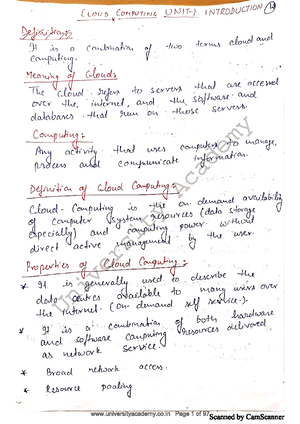 CLOUD COMPUTING UNIT-I INTRODUCTION
Definitions:
It is a combination of two terms cloud and
computing.
Meaning of Cloud:
The cloud refers to servers that are accessed
over the internet, and the software and
databases that run on those servers.
Computing:
Any activity that uses computers to manage,
process and communicate information.
Definition of Cloud Computing:
Cloud-Computing is the on-demand availability
of computer system resources (data storage
especially) and computing power without
direct active management by the user.
Properties of Cloud Computing:
* It is generally used to describe the
data centres available to many users over
the internet. (on-demand self service).
* It is a combination of both hardware
and software computing resources delivered
as network service.
* Broad network access.
* Resource pooling
University Academy
www.universityacademy.co.in Page 1 of 97
Scanned by CamScanner